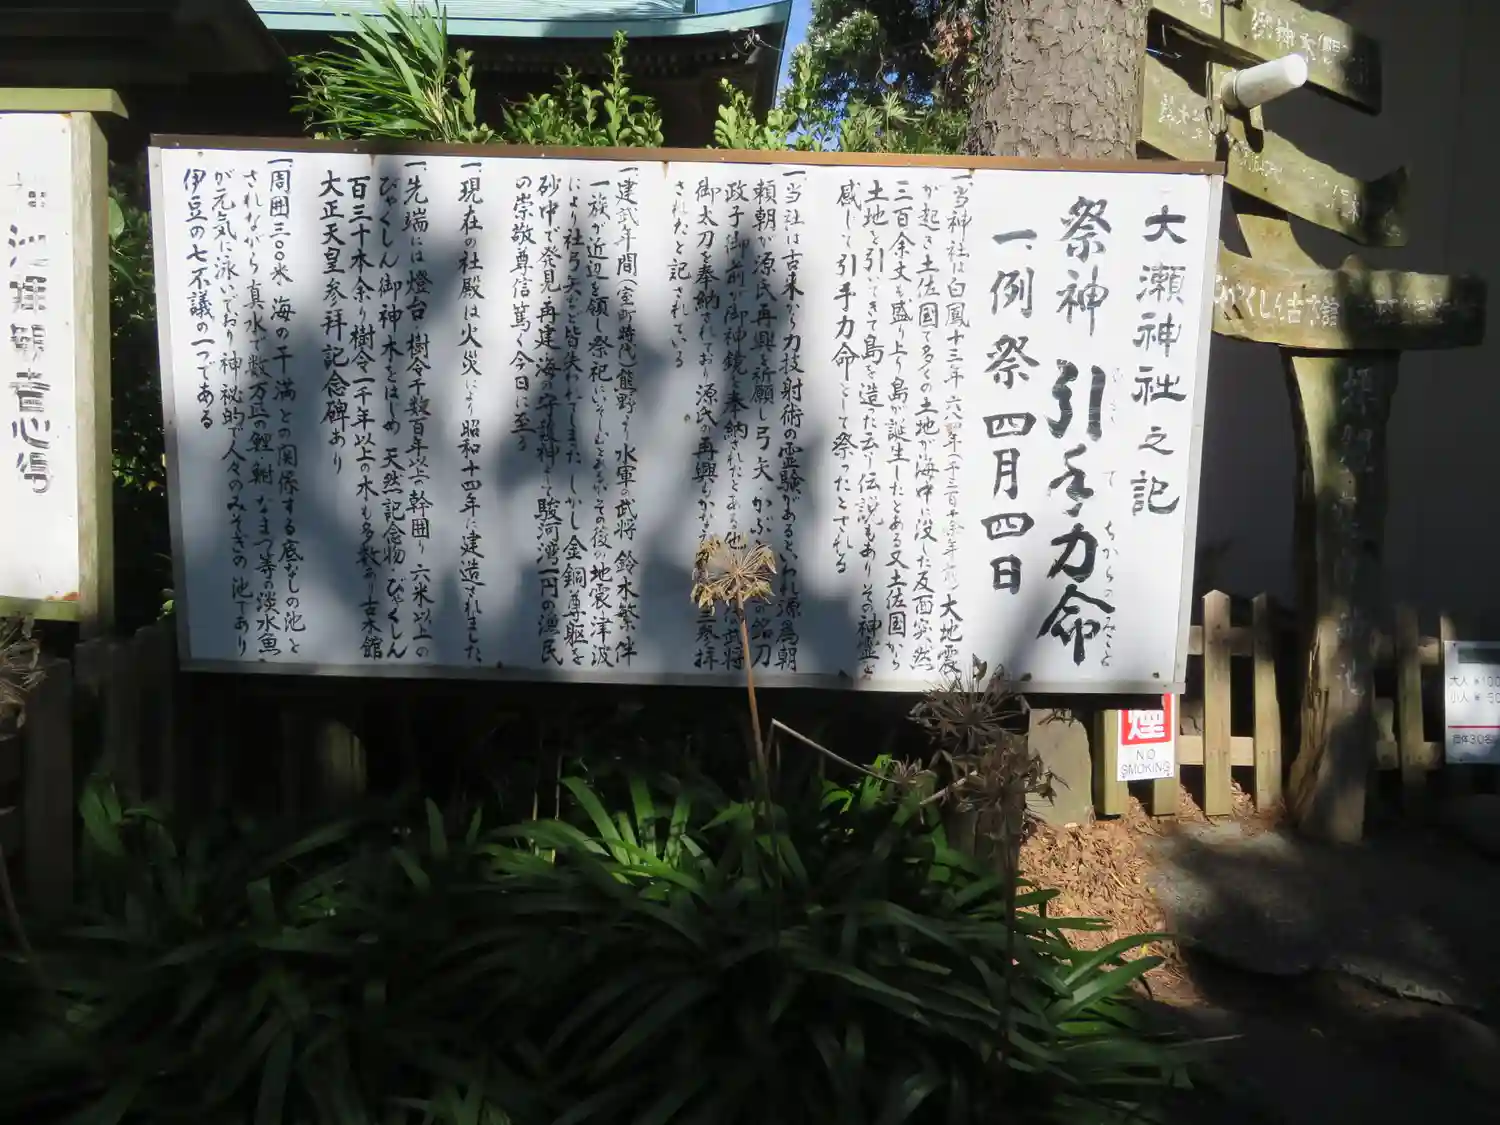 大瀬神社之記
祭神 引手力命
ひき て ちからの みこと
一、例祭 四月四日
一、当神社は白鳳十三年 大地震
が起き土佐国で多くの土地が海中に没した反面突然
三百余丈も盛り上り島が誕生したとある又土佐国から
土地を引いてきて島を造った云う伝説もありその神霊を
感じて引手力命として祭ったとされる
一、当社は古来から力技射術の霊験があるといわれ源為朝
頼朝が源氏再興を祈願し弓矢・かぶと
政子御前が御神鏡を奉納されたとある他 武将
御太刀を奉納されており源氏の再興も 参拝
されたと記されている。
一、建武年間(室町時代)熊野より水軍の武将 鈴木繁伴
一族が近辺を領し祭祀にいそしむとあるがその後の地震、津波
により社弓矢など皆失われてしまった しかし金銅尊躯を
砂中で発見 再建 海の守護神として駿河湾一円の漁民
の崇敬尊信篤く今日に至る
一、現在の社殿は火災により昭和十四年に建造されました
一、先端には燈台・樹令千数百年以上幹囲り六米以上の
びゃくしん御神木をはじめ 天然記念物・びゃくしん
百三十本余り樹令一千年以上の木も多数あり古木館
大正天皇参拝記念碑あり
一、周囲三〇〇米 海の干満との関係する底なしの池と
されながら真水で数万匹の鯉 鮒 なまづ等の淡水魚
が元気に泳いでおり神秘的で人々のみそぎの池であり
伊豆の七不議の一つである
煙
NO
SMOKING
大人 ¥100
小人 ¥ 50
団体30名